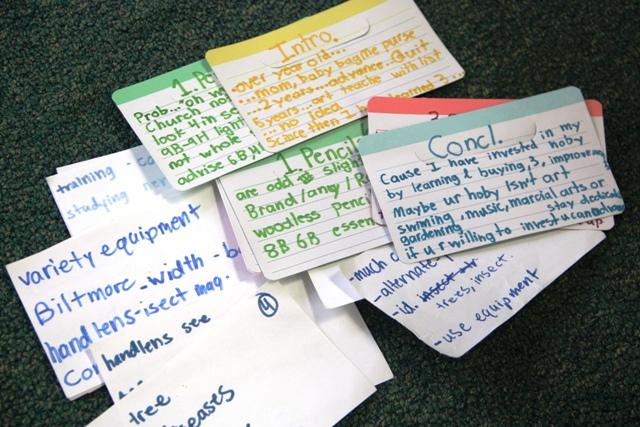 Intro.
-over year old...
...mom, baby bag me purse
2 years...advance...Quit
5 years...art teache with list
...no idea
Since then I
1. Pe
Prob..."oh w
Church not
look 4 in sc
6B-9H ligh
not whole
advise 6B, H
1. Pencil
are odd slight
Brand/any/R
woodless penc
8B 6B essen
Concl.
Cause I have invested in my hoby
by learning & buying, 3, improving
Maybe ur hoby isn't art
swmming, music, marcial arts or
gardening, stay dedica
if u r willing to invest u can
training -
studying
variety equipment
Biltmore -width -b
handlens-isect mag.
Co
handlens see
4
tree
-much
-alternate
-id. insect tr
trees, insect.
-use equipment